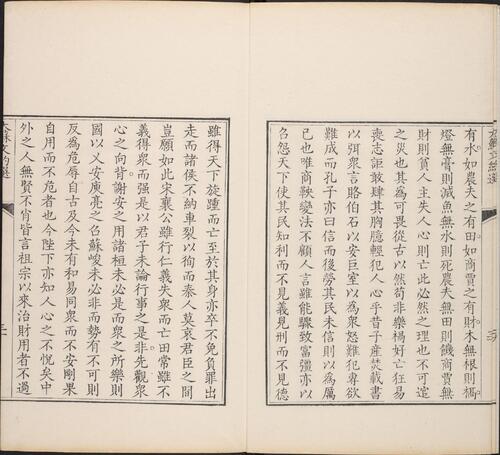 有水如農夫之有田如商賈之有財木無根則槁
燈無膏則滅魚無水則死農夫無田則饑商賈無
財則貧人主失人心則亡此必然之理也不可逭
之災也其為可畏從古以然苟非樂禍好亡狂易
喪志詎敢肆其胸臆輕犯人心乎昔子產焚載書
以弭眾言賂伯石以安巨室以為眾怒難犯專欲
難成而孔子亦曰信而後勞其民未信則以為厲
已也唯商鞅變法不顧人言雖能驟致富彊亦以
召怨天下使其民知利而不見義見刑而不見德
雖得天下旋踵而亡至於其身亦卒不免負罪出
走而諸侯不納車裂以徇而秦人莫哀君臣之間
豈願如此宋襄公雖行仁義失眾而亡田常雖不
義得眾而强是以君子未論行事之是非先觀眾
心之向背謝安之用諸桓未必是而眾之所樂則
國以乂安庾亮之召蘇峻未必非而勢有不可則
反為危辱自古及今未有和易同眾而不安剛果
自用而不危者也今陛下亦知人心之不悅矣中
外之人無賢不肖皆言祖宗以來治財用者不過